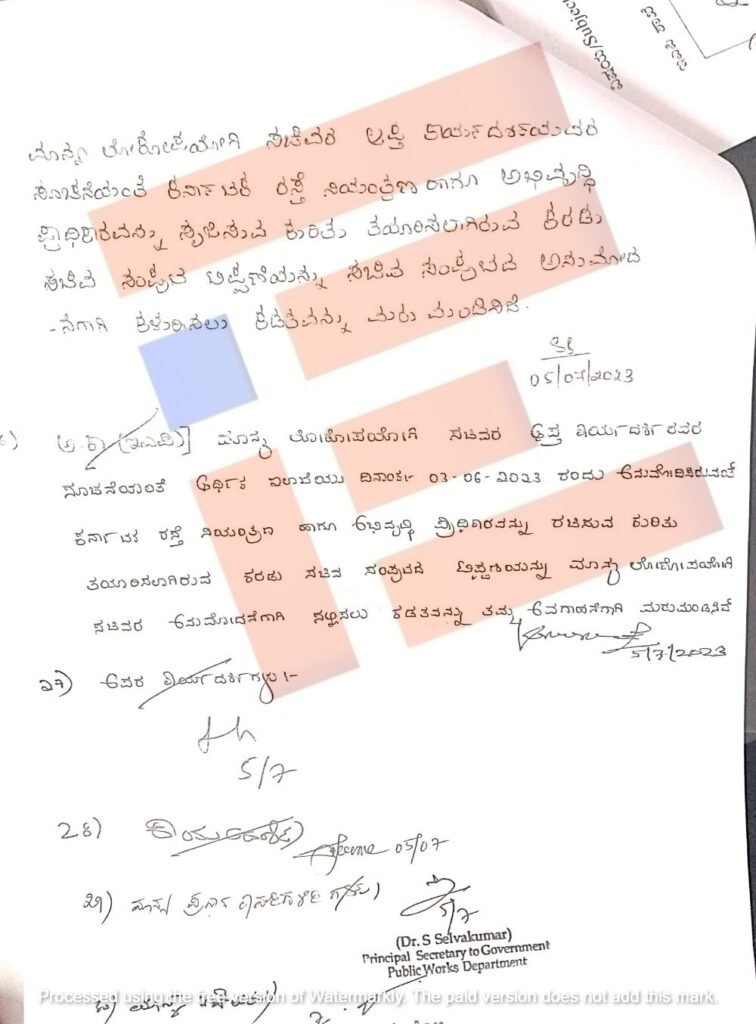 ವಿಷಯ/Subject
ಮಾನ್ಯ ಲೋಕೋಪಯೋಗಿ ಸಚಿವರ ಆಪ್ತ ಕಾರ್ಯದರ್ಶಿಯವರ
ಸೂಚನೆಯಂತೆ ಕರ್ನಾಟಕ ರಸ್ತೆ ನಿಯಂತ್ರಣ ಹಾಗೂ ಅಭಿವೃದ್ಧಿ
ಪ್ರಾಧಿಕಾರವನ್ನು ಸೃಜಿಸುವ ಕುರಿತು ತಯಾರಿಸಲಾಗಿರುವ ಕರಡು
ಸಚಿವ ಸಂಪುಟ ಟಿಪ್ಪಣಿಯನ್ನು ಸಚಿವ ಸಂಪುಟದ ಅನುಮೋದ
-ನೆಗಾಗಿ ಕಳುಹಿಸಲು ಕಡತವನ್ನು ಮರು ಮಂಡಿಸಿದೆ.
05/07/2023
ಮಾನ್ಯ ಲೋಕೋಪಯೋಗಿ ಸಚಿವರ ಆಪ್ತ ಕಾರ್ಯದರ್ಶಿರವರ
ಸೂಚನೆಯಂತೆ ಆರ್ಥಿಕ ಇಲಾಖೆಯು ದಿನಾಂಕ:- 03-06-2023 ರಂದು ಅನುಮೋದಿಸಿರುವಂತೆ
ಕರ್ನಾಟಕ ರಸ್ತೆ ನಿಯಂತ್ರಣ ಹಾಗೂ ಅಭಿವೃದ್ಧಿ ಪ್ರಾಧಿಕಾರವನ್ನು ರಚಿಸುವ ಕುರಿತು
ತಯಾರಿಸಲಾಗಿರುವ ಕರಡು ಸಚಿವ ಸಂಪುಟದ ಟಿಪ್ಪಣಿಯನ್ನು ಮಾನ್ಯ ಲೋಕೋಪಯೋಗಿ
ಸಚಿವರ ಅನುಮೋದನೆಗಾಗಿ ಸಲ್ಲಿಸಲು ಕಡತವನ್ನು ತಮ್ಮ ಅವಗಾಹನೆಗಾಗಿ ಮರುಮಂಡಿಸಿದೆ
5/7/2023
೨೭) ಅಪರ ಕಾರ್ಯದರ್ಶಿಗಳು :-
5/7
28)
05/07
೨೯) ಮಾನ್ಯ ಪ್ರಧಾನ ಕಾರ್ಯದರ್ಶಿಗಳು
5/7
(Dr. S Selvakumar)
Principal Secretary to Government
Public Works Department
Processed using the free version of Watermarkly. The paid version does not add this mark.
ಮಾನ್ಯ ಸಚಿವರು